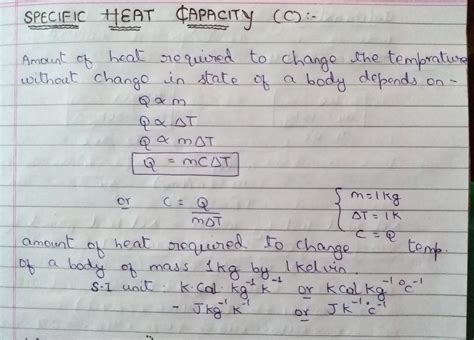 SPECIFIC HEAT CAPACITY (C):-
Amount of heat required to change the temprature
without change in state of a body depends on -
Q ∝ m
Q ∝ ΔT
Q ∝ mΔT
Q = mCΔT
or C = Q/mΔT { m = 1kg
ΔT = 1K
C = Q
amount of heat required to change temp.
of a body of mass 1kg by 1 kelvin.
S.I unit - K.Cal kg⁻¹ K⁻¹ or K Cal kg⁻¹ °C⁻¹
- J kg⁻¹ K⁻¹ or J K⁻¹ °C⁻¹